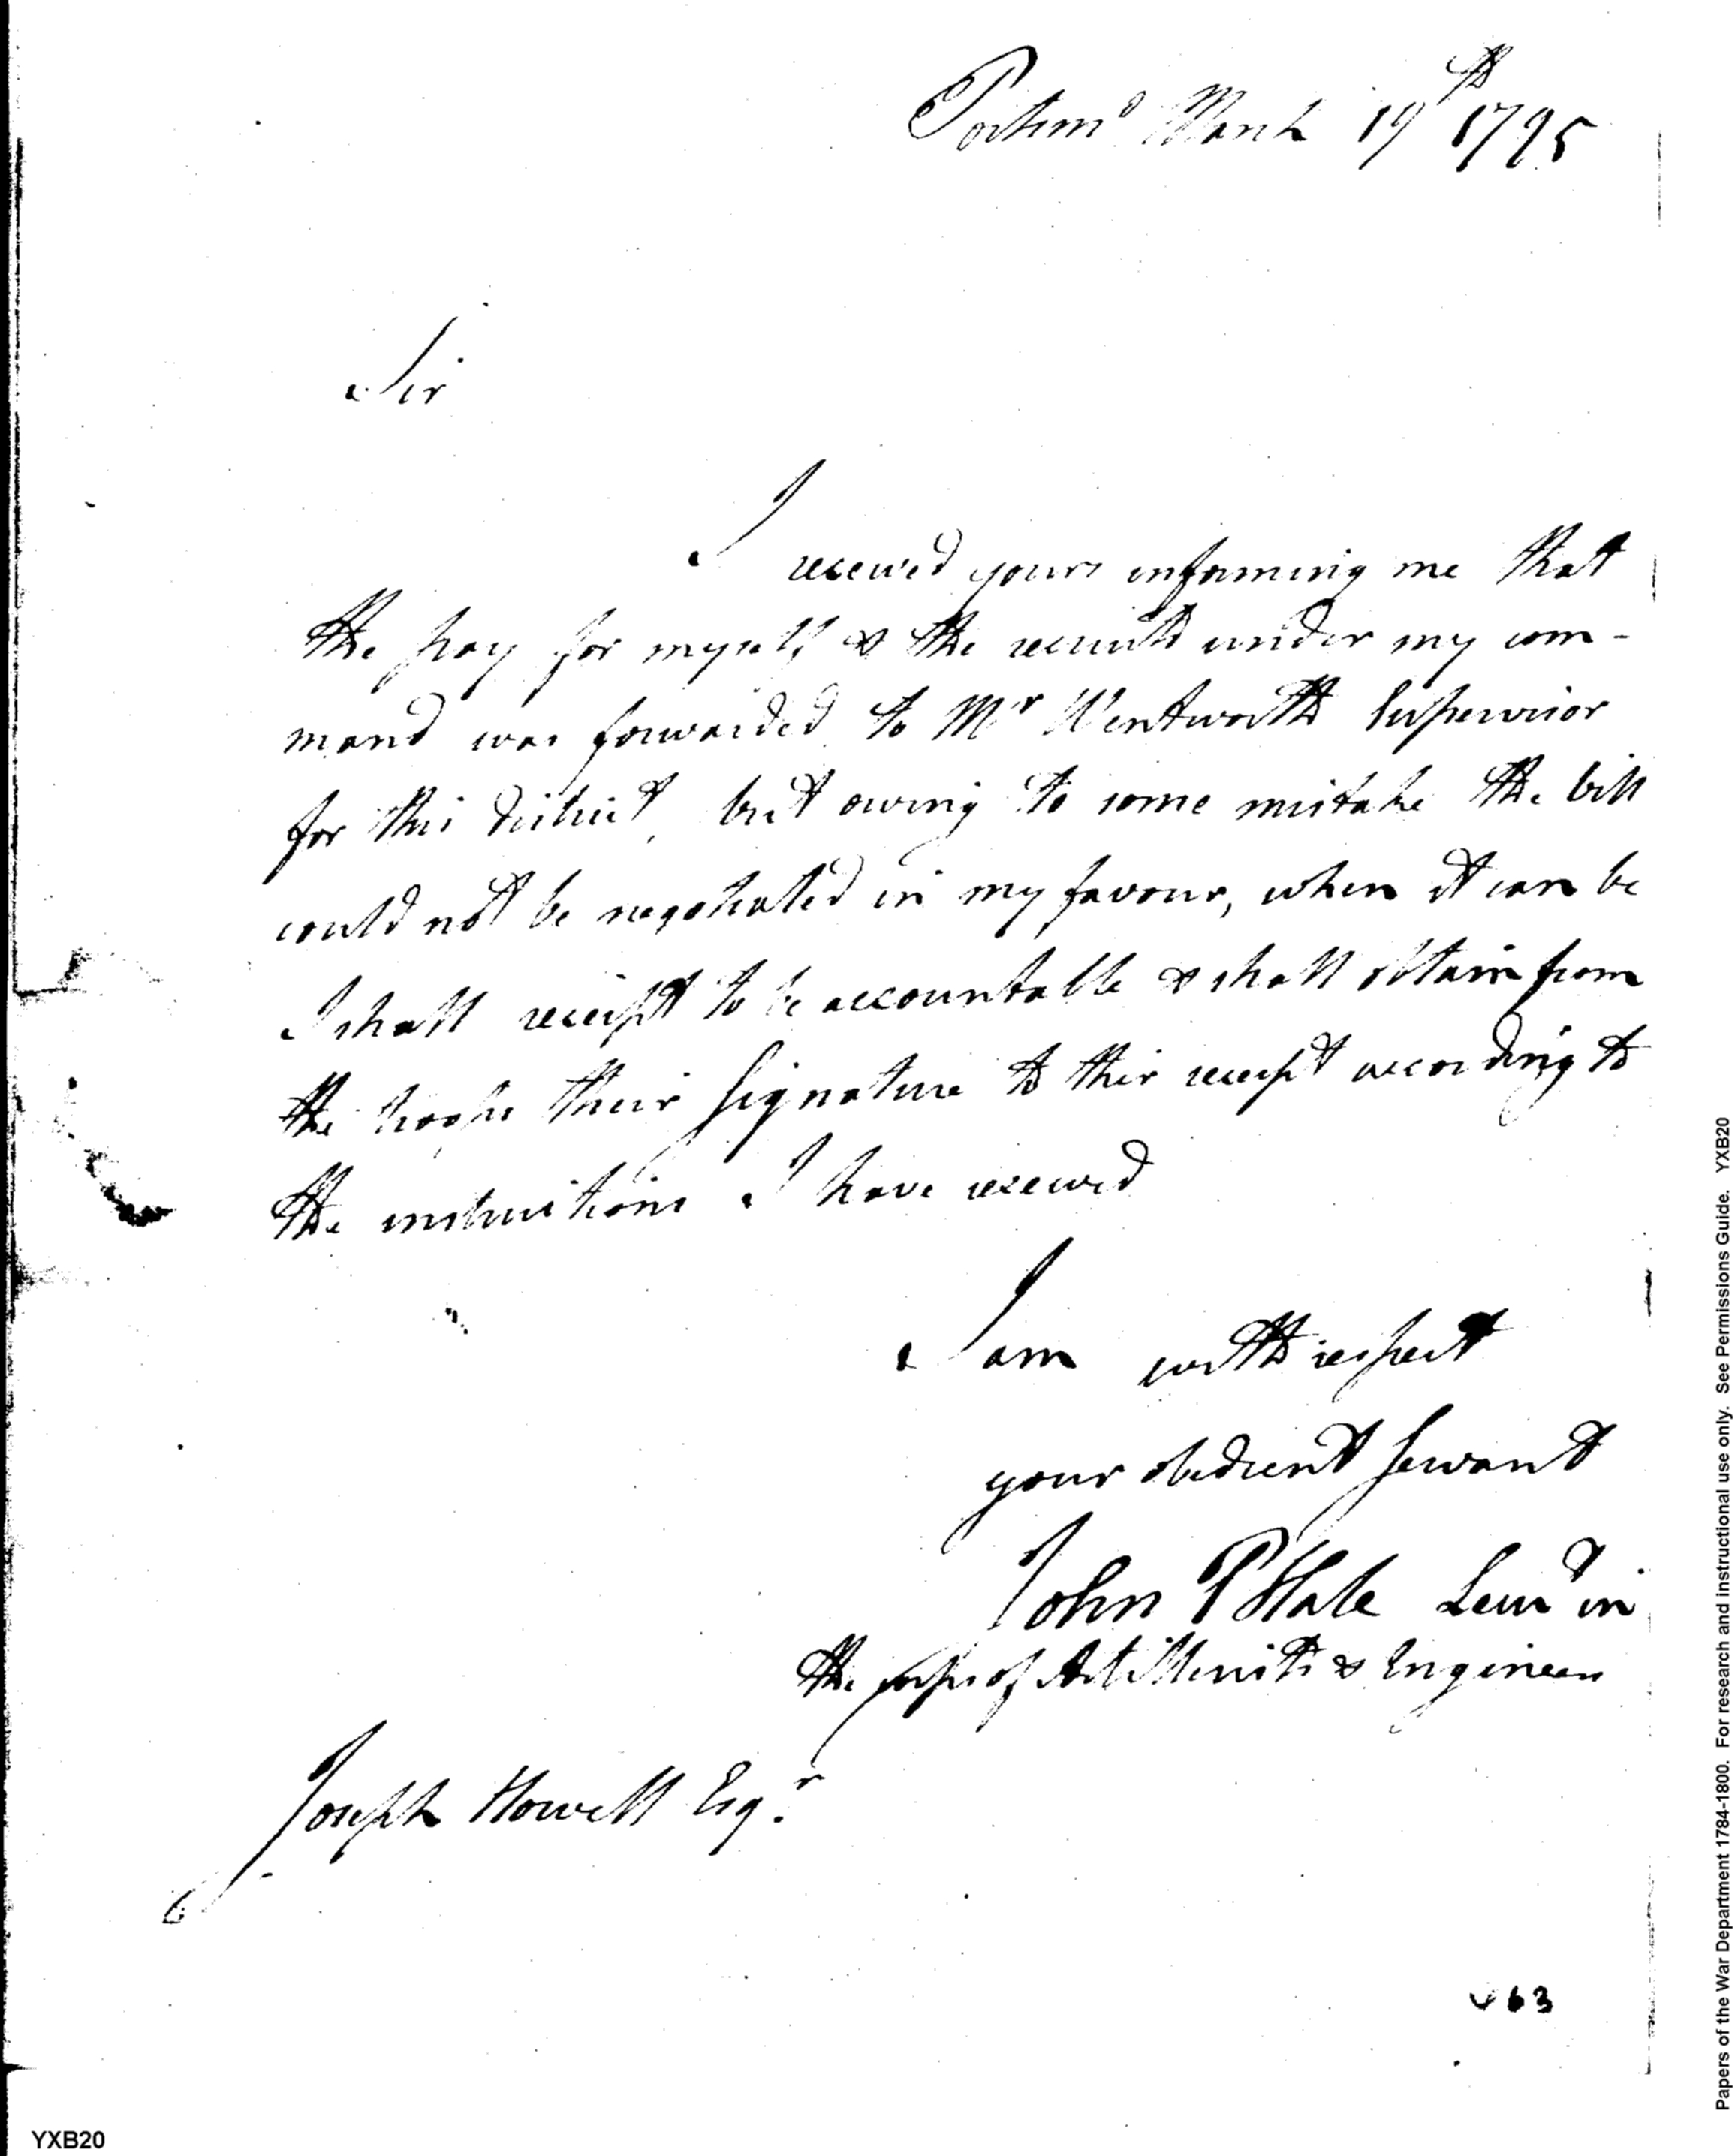 Portsmo March 19th 1795
Sir
I received yours informing me that
the pay for myself & the recruits under my com-
mand was forwarded to Mr Wentworth Supervisor
for this district, but owing to some mistake the bill
could not be negotiated in my favour, when it can be
I shall receipt to be accountable & shall obtain from
the troops their signature to their receipt according to
the instructions I have received
I am with respect
your obedient servant
John P Hale Leiut in
the corps of Artillerists & Engineers
Joseph Howell Esqr.
63
YXB20
Papers of the War Department 1784-1800. For research and instructional use only. See Permissions Guide. YXB20